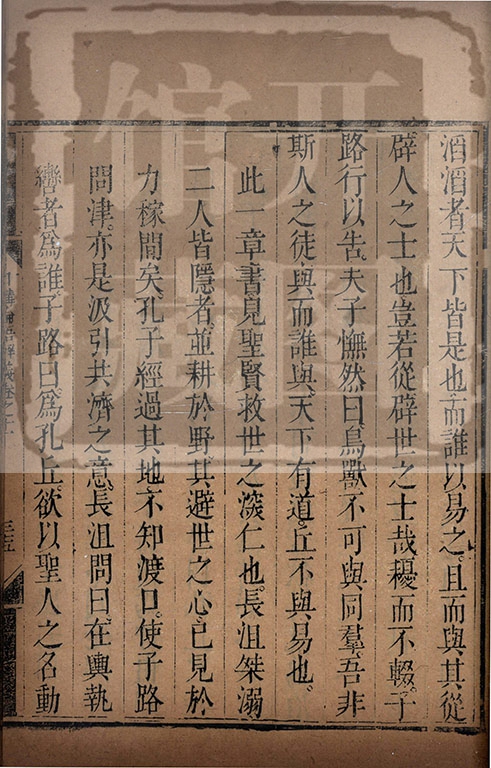 滔滔者天下皆是也而誰以易之且而與其從
辟人之士也豈若從辟世之士哉耰而不輟子
路行以告夫子憮然曰鳥獸不可與同羣吾非
斯人之徒與而誰與天下有道丘不與易也
此一章書見聖賢救世之深仁也長沮桀溺
二人皆隱者並耕於野其避世之心已見於
力稼間矣孔子經過其地不知渡口使子路
問津亦是汲引共濟之意長沮問曰在輿執
轡者為誰子路曰為孔丘欲以聖人之名動